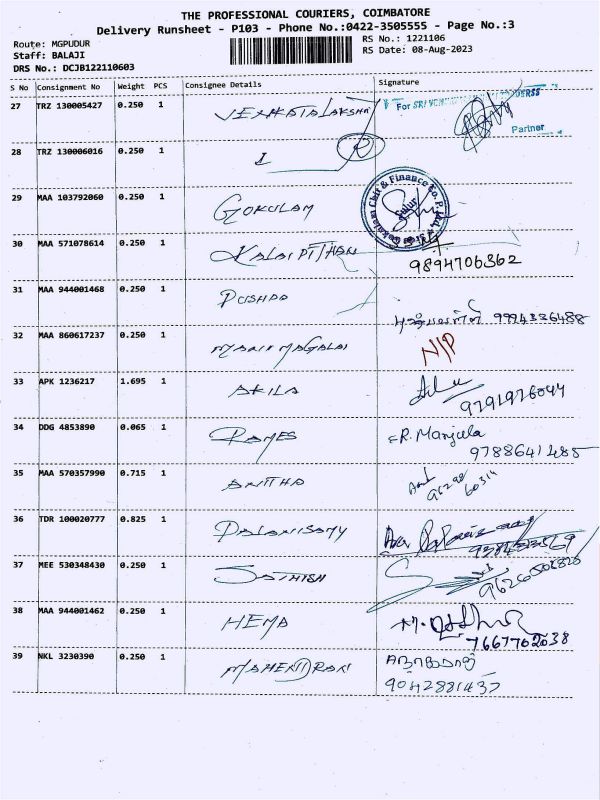 THE PROFESSIONAL COURIERS, COIMBATORE
Delivery Runsheet - P103 - Phone No.:0422-3505555 - Page No.:3
Route: MGPUDUR
RS No.: 1221106
Staff: BALAJI
RS Date: 08-Aug-2023
DRS No.: DCJB122110603
S No Consignment No Weight PCS Consignee Details Signature
27 TRZ 130005427 0.250 1 For SRI
Partner
28 TRZ 130006016 0.250 1 R
29 MAA 103792060 0.250 1 GOKULAM
Gokulam Chit & Finance Co. P. Ltd. Sulur
30 MAA 571078614 0.250 1
9894706362
31 MAA 944001468 0.250 1 PUSHPA 9994336488
32 MAA 860617237 0.250 1 N/P
33 APK 1236217 1.695 1 AKILA
9791976044
34 DDG 4853890 0.065 1 RAMES R. Manjula
9788641485
35 MAA 570357990 0.715 1 ANITHA
36 TDR 100020777 0.825 1 PALANISAMY
37 MEE 530348430 0.250 1 SATHISH
38 MAA 944001462 0.250 1 HEMA
7667702038
39 NKL 3230390 0.250 1 MAHENDRAN
9042881437